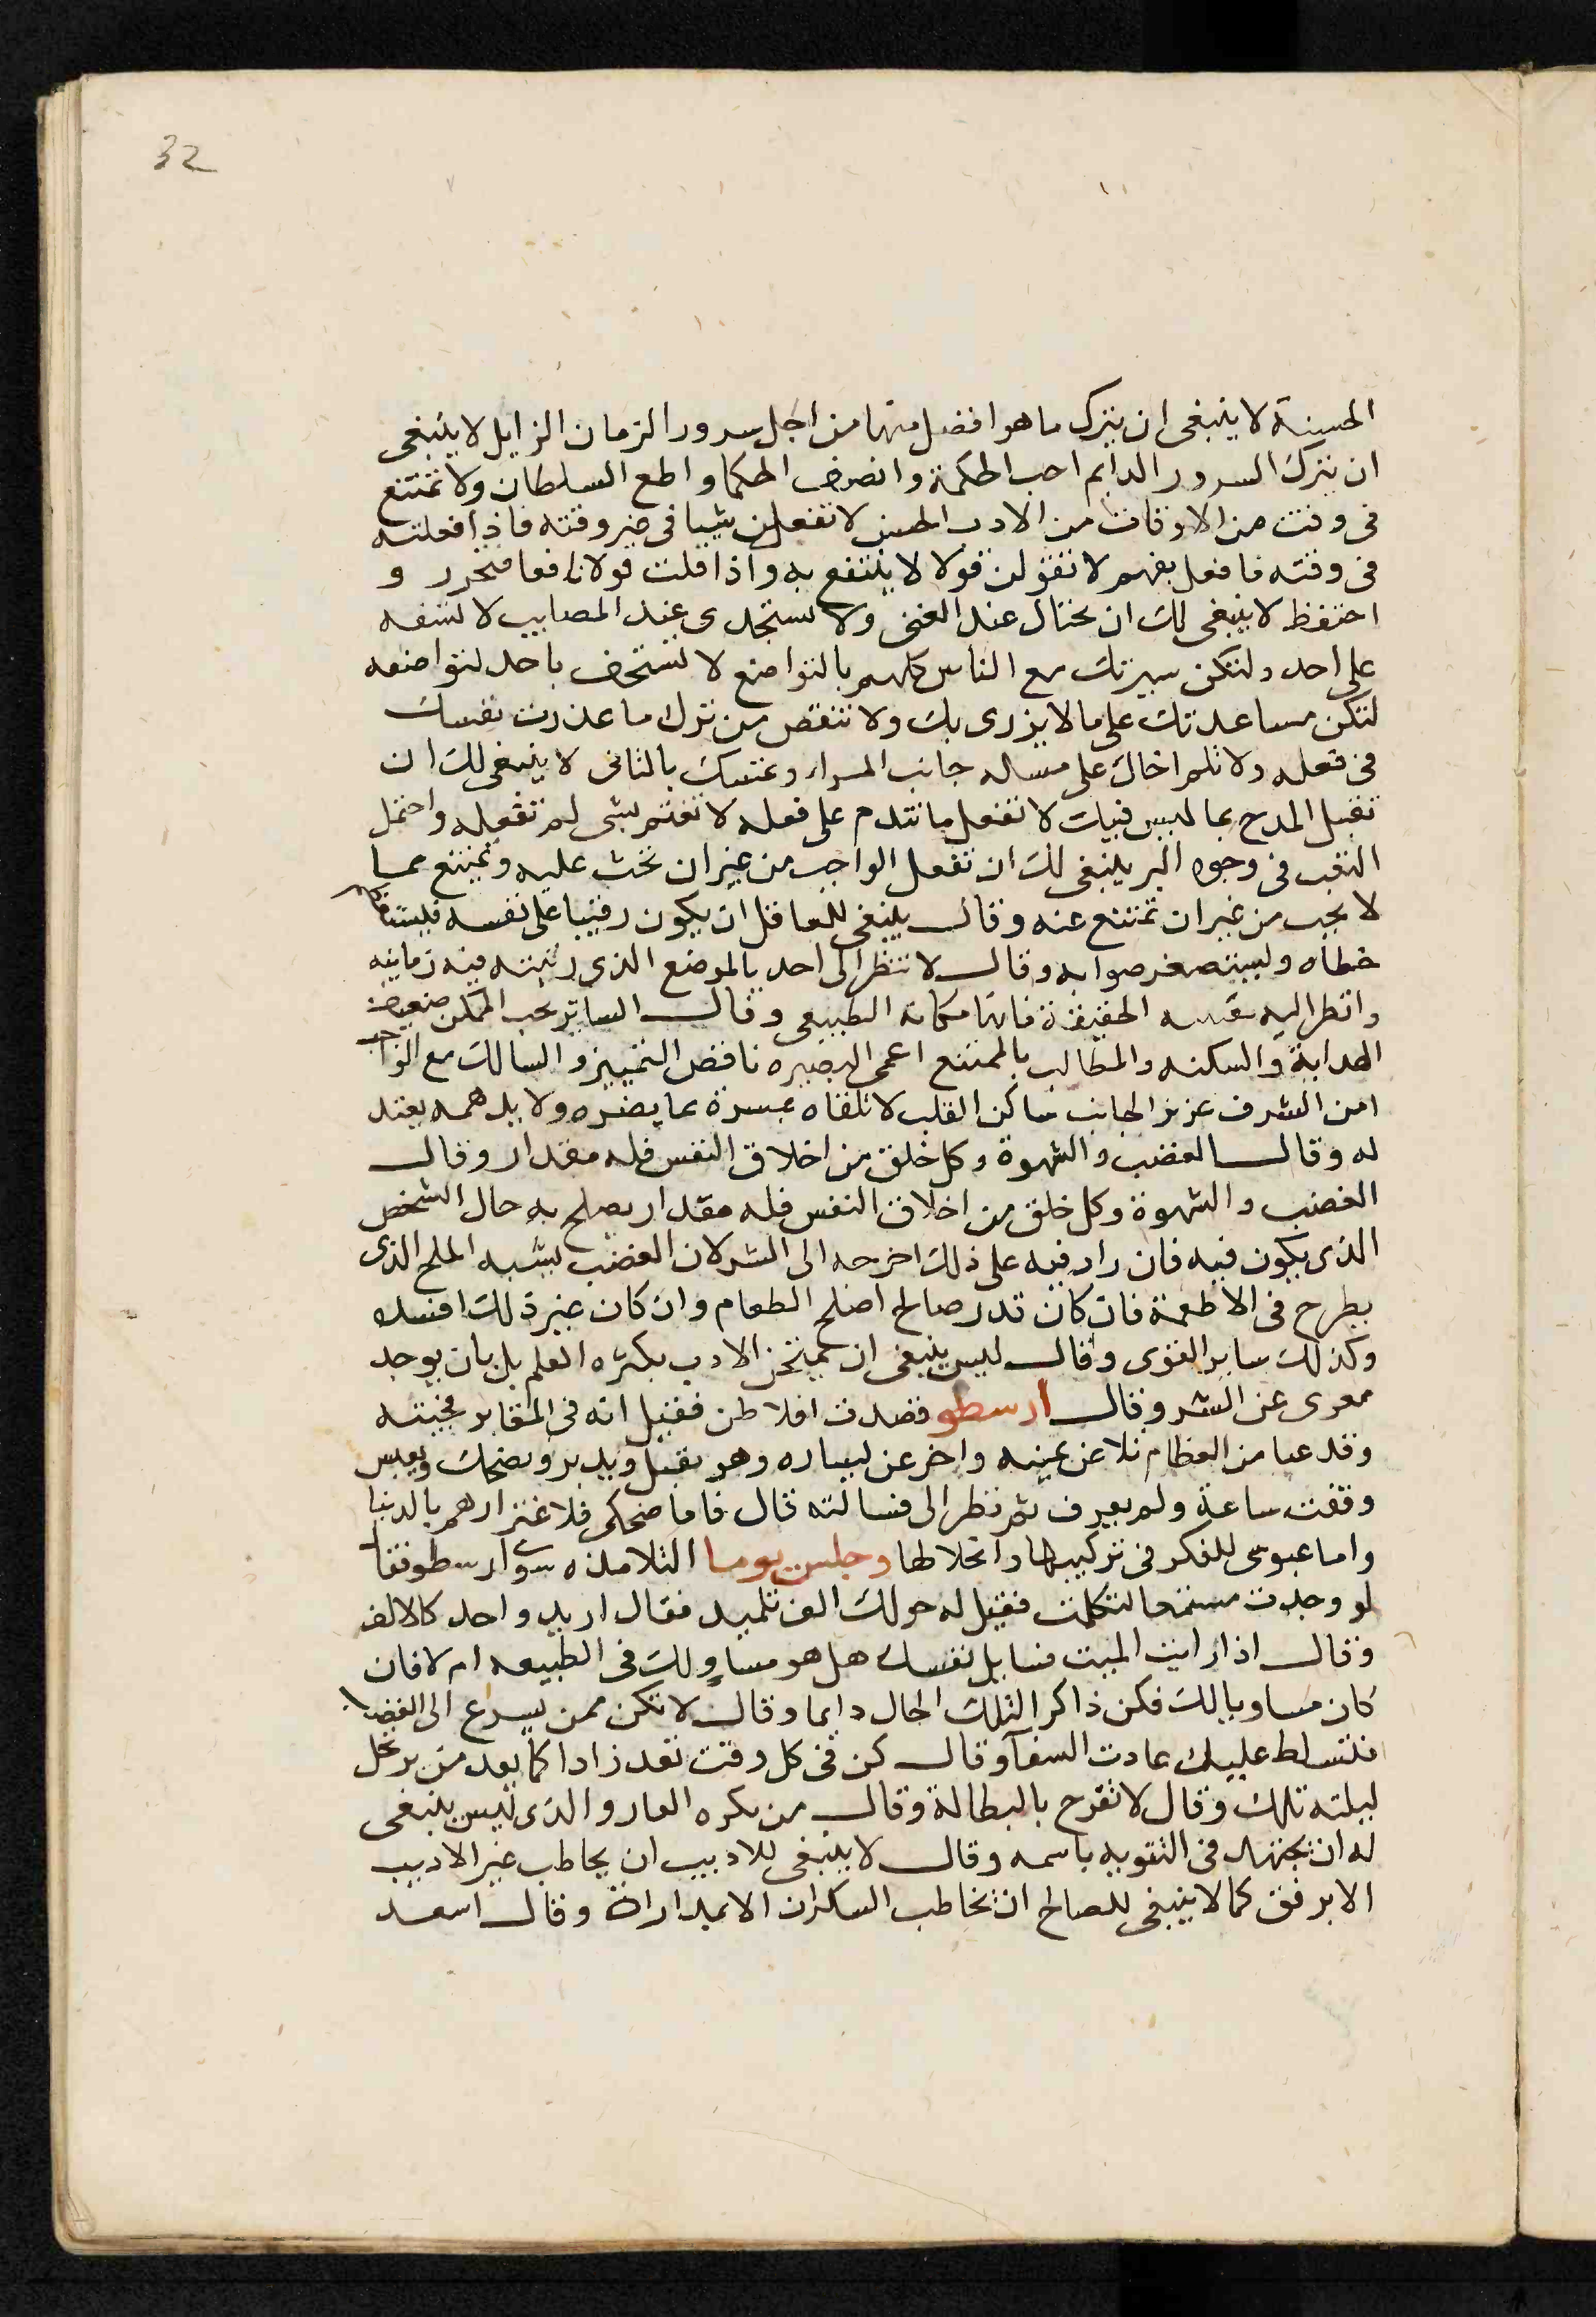 32
الحسنة لا ينبغى ان يترك ما هو افضل منها من اجل سرور الزمان الزايل لا ينبغى
ان يترك السرور الدايم احب الحكمة وانصف الحكما واطع السلطان ولا تمتنع
فى وقت من الاوقات من الادب الحسن لا تفعلن شيا فى غير وقته فاذا فعلته
فى وقته فافعل بفهم لا تقولن قولا لا ينتفع به واذا قلت قولا نافعا فتحرر و
احتفظ لا ينبغى لك ان تختال عند الغنى ولا تستجدى عند المصايب لا تسفه
على احد ولتكن سيرتك مع الناس كلهم بالتواضع لا تستخف باحد لتواضعه
لتكن مساعدتك على ما لا يزرى بك ولا تنقص من ترك ما عذرت نفسك
فى فعله ولا تلم اخاك على مساله جانب المراء وعتسك بالثانى لا ينبغى لك ان
تقبل المدح بما ليس فيك لا تفعل ما تندم على فعله لا تغتم بشى لم تفعله واحتمل
التعب فى وجوه البر ينبغى لك ان تفعل الواجب من غير ان تحث عليه وتمتنع عما
لا يجب من غير ان تمتنع عنه وقال ينبغى للعاقل ان يكون رقيبا على نفسه
خطاه وليستصغر صوابه وقال لا تنظر الى احد بالموضع الذى رتبته فيه زمانه
وانظر اليه الحقيقة فانها مكانه الطبيعى وقال الساتر يحب الممكن ضعيف
الهداية والسكنه والمطالب بالممتنع اعمى البصيره ناقص التمييز والسالك مع الواجب
امن الشرف عزيز الجانب ساكن القلب لا تلقاه عسرة عما يضره ولا يدهمه بعتد
له وقال الغضب والشهوة وكل خلق من اخلاق النفس فله مقدار وقال
الغضب والشهوة وكل خلق من اخلاق النفس فله مقدار يصلح به حال الشخص
الذى يكون فيه فان زاد فيه على ذلك اخرجه الى الشر لان الغضب يشبه الملح الذى
يطرح فى الاطعمة فان كان قدر صالح اصلح الطعام وان كان غير ذلك افسده
وكذلك ساير القوى وقال ليس ينبغى ان يمتحن الادب بكثره العلم بل بان يوجد
معرى عن الشر وقال ارسطو قصدت افلاطن فقيل انه فى المقابر فجيته
وقد عبا من العظام تلا عن يمينه واخر عن يساره وهو يقبل ويدبر ويضحك ويعبس
وقفت ساعة ولم يعرف ثم نظر الى فسالته قال فاما ضحكى فلاغترارهم بالدنيا
واما عبوسى للفكر فى تركيبها وانحلالها وجلس يوما التلامذه سوى ارسطو فقال
لو وجدت مستمعا لتكلمت فقيل له حولك الف تلميد فقال اريد واحد كالالف
وقال اذا رايت الميت فسايل نفسك هل هو مساو لك فى الطبيعه ام لا فان
كان مساويا لك فكن ذاكرا لتلك الحال دايما وقال لا تكن ممن يسرع الى الغضب
فتسلط عليك عادت السفآ وقال كن فى كل وقت تعد زادا كما يعد من يرحل
ليلته تلك وقال لا تفرح بالبطالة وقال من يكره العار والذى ليس ينبغى
له ان يجتهد فى التنويه باسمه وقال لا ينبغى للاديب ان يخاطب غير الاديب
الا برفق كما لا ينبغى للصالح ان يخاطب السكران الا بمداراة وقال اسعد